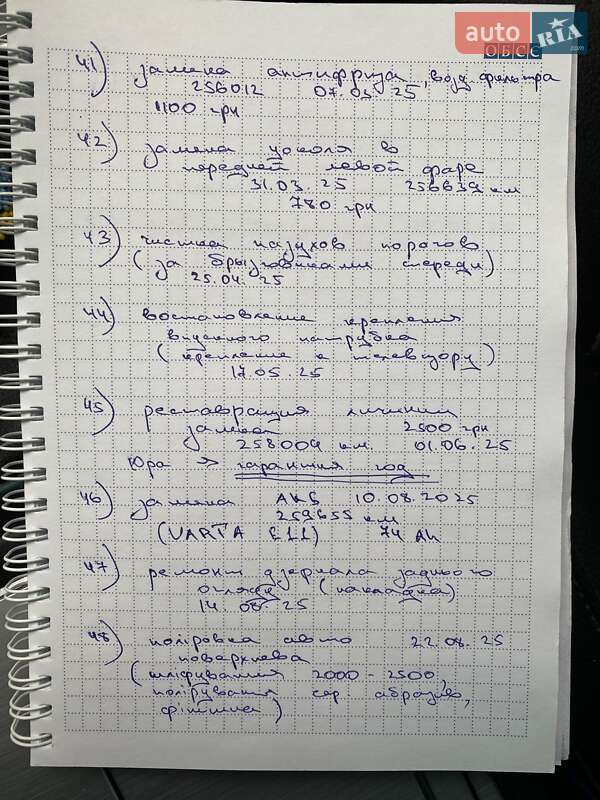 auto RIA .com
ОБСС
41) замена антифриза, возд фильтра
256012 07.03.25
1100 грн
42) замена цоколя в
передней левой фаре
31.03.25 256639 км
780 грн
43) чистка пазухов порогов
(за брызговиками спереди)
25.04.25
44) востановление крепления
впускного патрубка
(крепление к телевизору)
17.05.25
45) реставрация личинки
замка 2500 грн
258009 км. 01.06.25
Юра → гарантия год
46) замена АКБ 10.08.2025
259655 км
(VARTA E11) 74 Ah
47) ремонт дзеркала заднього
огляду (накладка)
14.08.25
48) поліровка авто 22.08.25
поверхнева
(шліфування 2000-2500,
полірування сер абразив,
фінішна)